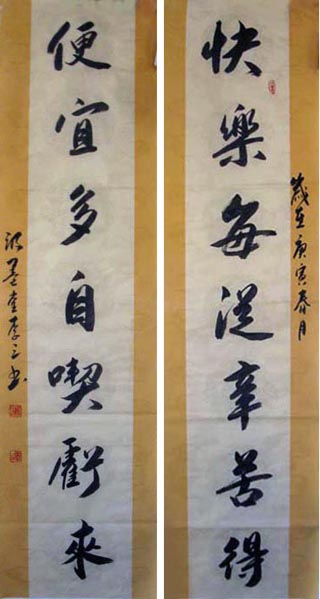 歲在庚寅春月
快樂每從辛苦得
便宜多自喫虧來